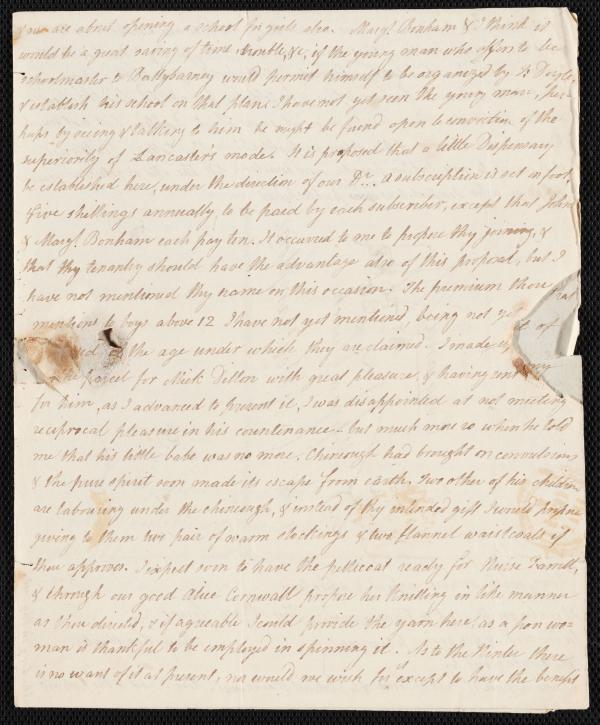 you are about opening a school for girls also. Margt. Bonham & I think it
would be a great saving of time, trouble, &c, if the young man who offers to be
schoolmaster to Ballybarney would permit himself to be organized by Js. Doyle,
& establish his school on that plan. I have not yet seen the young man, per-
haps by seeing & talking to him he might be found open to conviction of the
superiority of Lancaster's mode. It is proposed that a little Dispensary
be established here, under the direction of our Dr... a subscription is set on foot,
Five shillings annually, to be paid by each subscriber, except that John
& Margt. Bonham each pay ten. It occurred to me to propose thy joining, &
that thy tenantry should have the advantage also of this proposal, but I
have not mentioned thy name on this occasion. The premium thou hast
mentioned to boys above 12 I have not yet mentioned, being not yet
the age under which they are claimed. I made up
parcel for Mick Dillon with great pleasure, & having sent
for him, as I advanced to present it, I was disappointed at not meeting
reciprocal pleasure in his countenance - but much more so when he told
me that his little babe was no more. Chincough had brought on convulsions
& the pure spirit soon made its escape from earth. Two other of his children
are labouring under the chincough, & instead of thy intended gift I would propose
giving to them two pair of warm stockings & two flannel waistcoats if
thou approves. I expect soon to have the petticoat ready for Nurse Farrell,
& through our good Alice Cornwall propose her knitting in like manner
as thou directed, & if agreeable I could provide the yarn here, as a poor wo-
man is thankful to be employed in spinning it. As to the Winter there
is no want of it at present, nor would we wish for it except to have the benefit